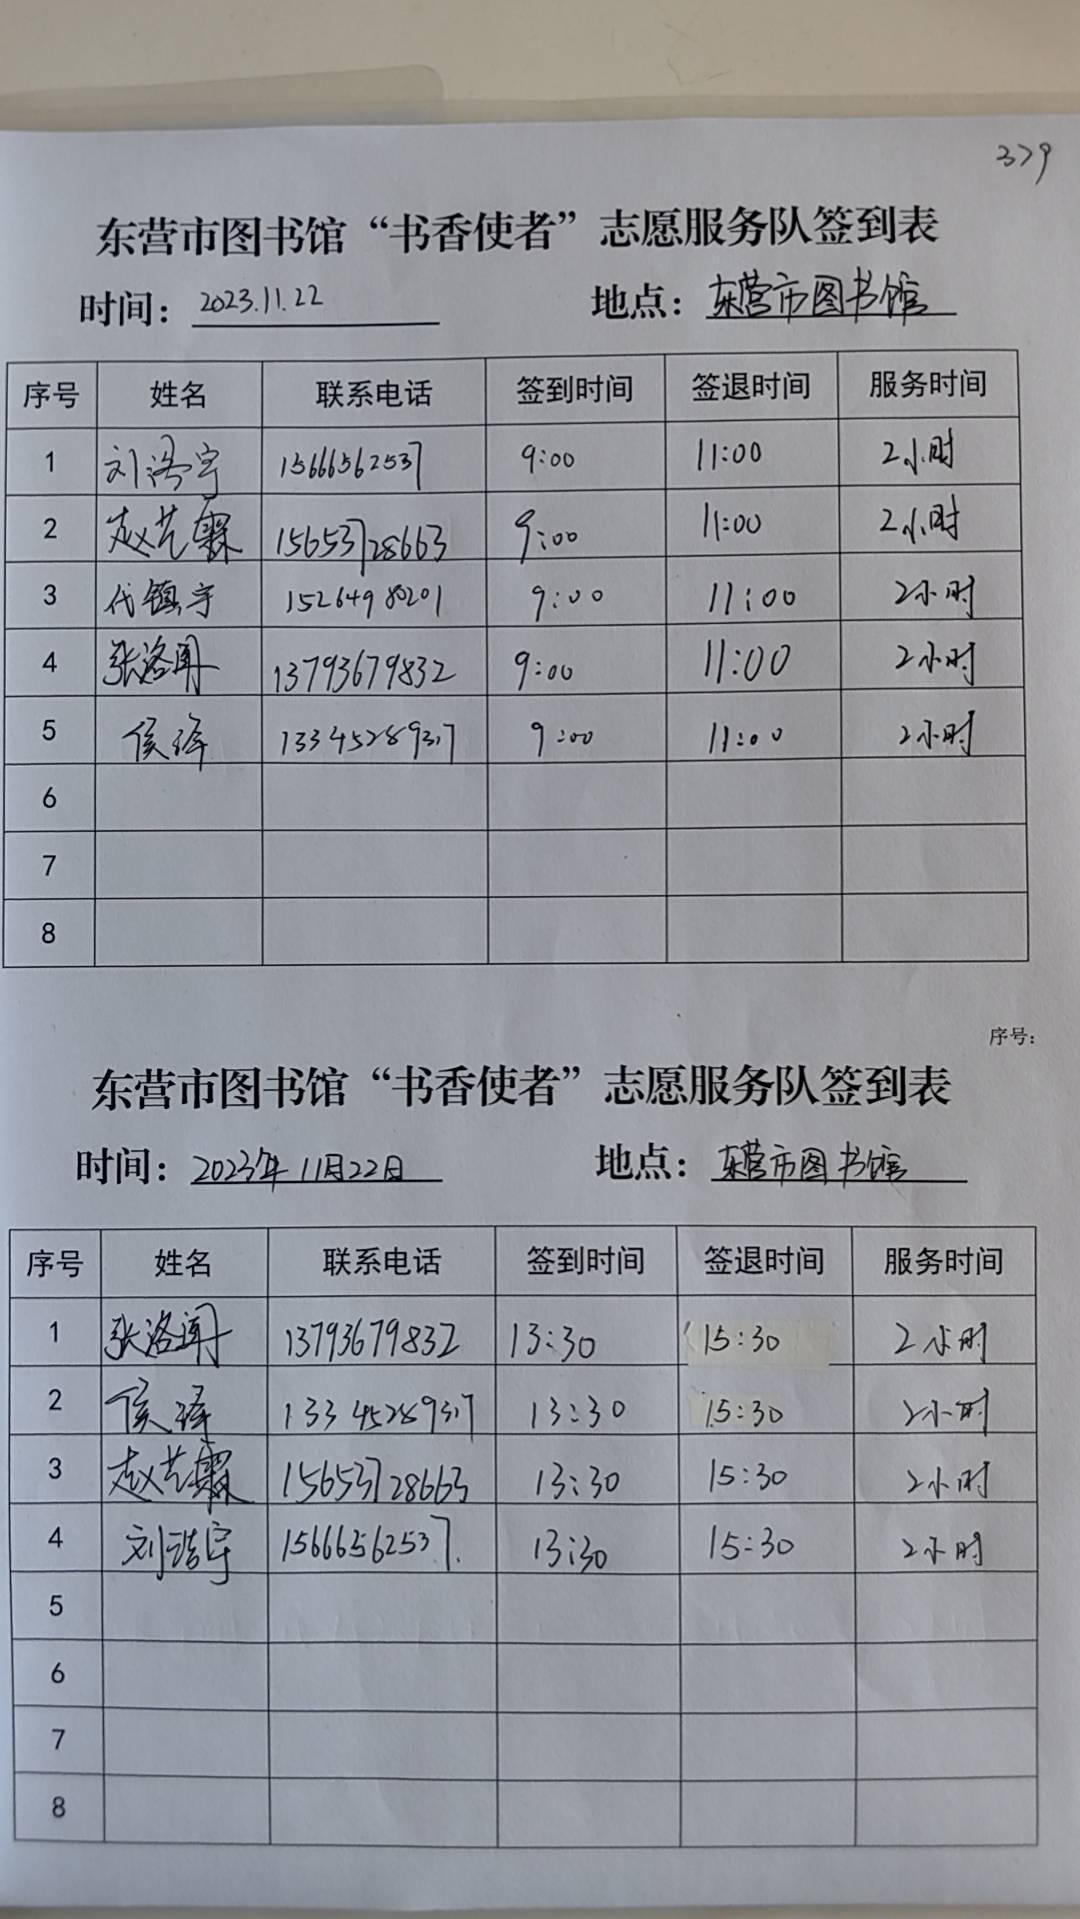 379
东营市图书馆“书香使者”志愿服务队签到表
时间：2023.11.22 地点：东营市图书馆
序号 姓名 联系电话 签到时间 签退时间 服务时间
1 刘浩宇 15666562537 9:00 11:00 2小时
2 赵艺霖 15653728663 9:00 11:00 2小时
3 代镇宇 15264980201 9:00 11:00 2小时
4 张洛闻 13793679832 9:00 11:00 2小时
5 侯泽 13345289317 9:00 11:00 2小时
6
7
8
序号：
东营市图书馆“书香使者”志愿服务队签到表
时间：2023年11月22日 地点：东营市图书馆
序号 姓名 联系电话 签到时间 签退时间 服务时间
1 张洛闻 13793679832 13:30 15:30 2小时
2 侯泽 13345289317 13:30 15:30 2小时
3 赵艺霖 15653728663 13:30 15:30 2小时
4 刘浩宇 15666562537 13:30 15:30 2小时
5
6
7
8